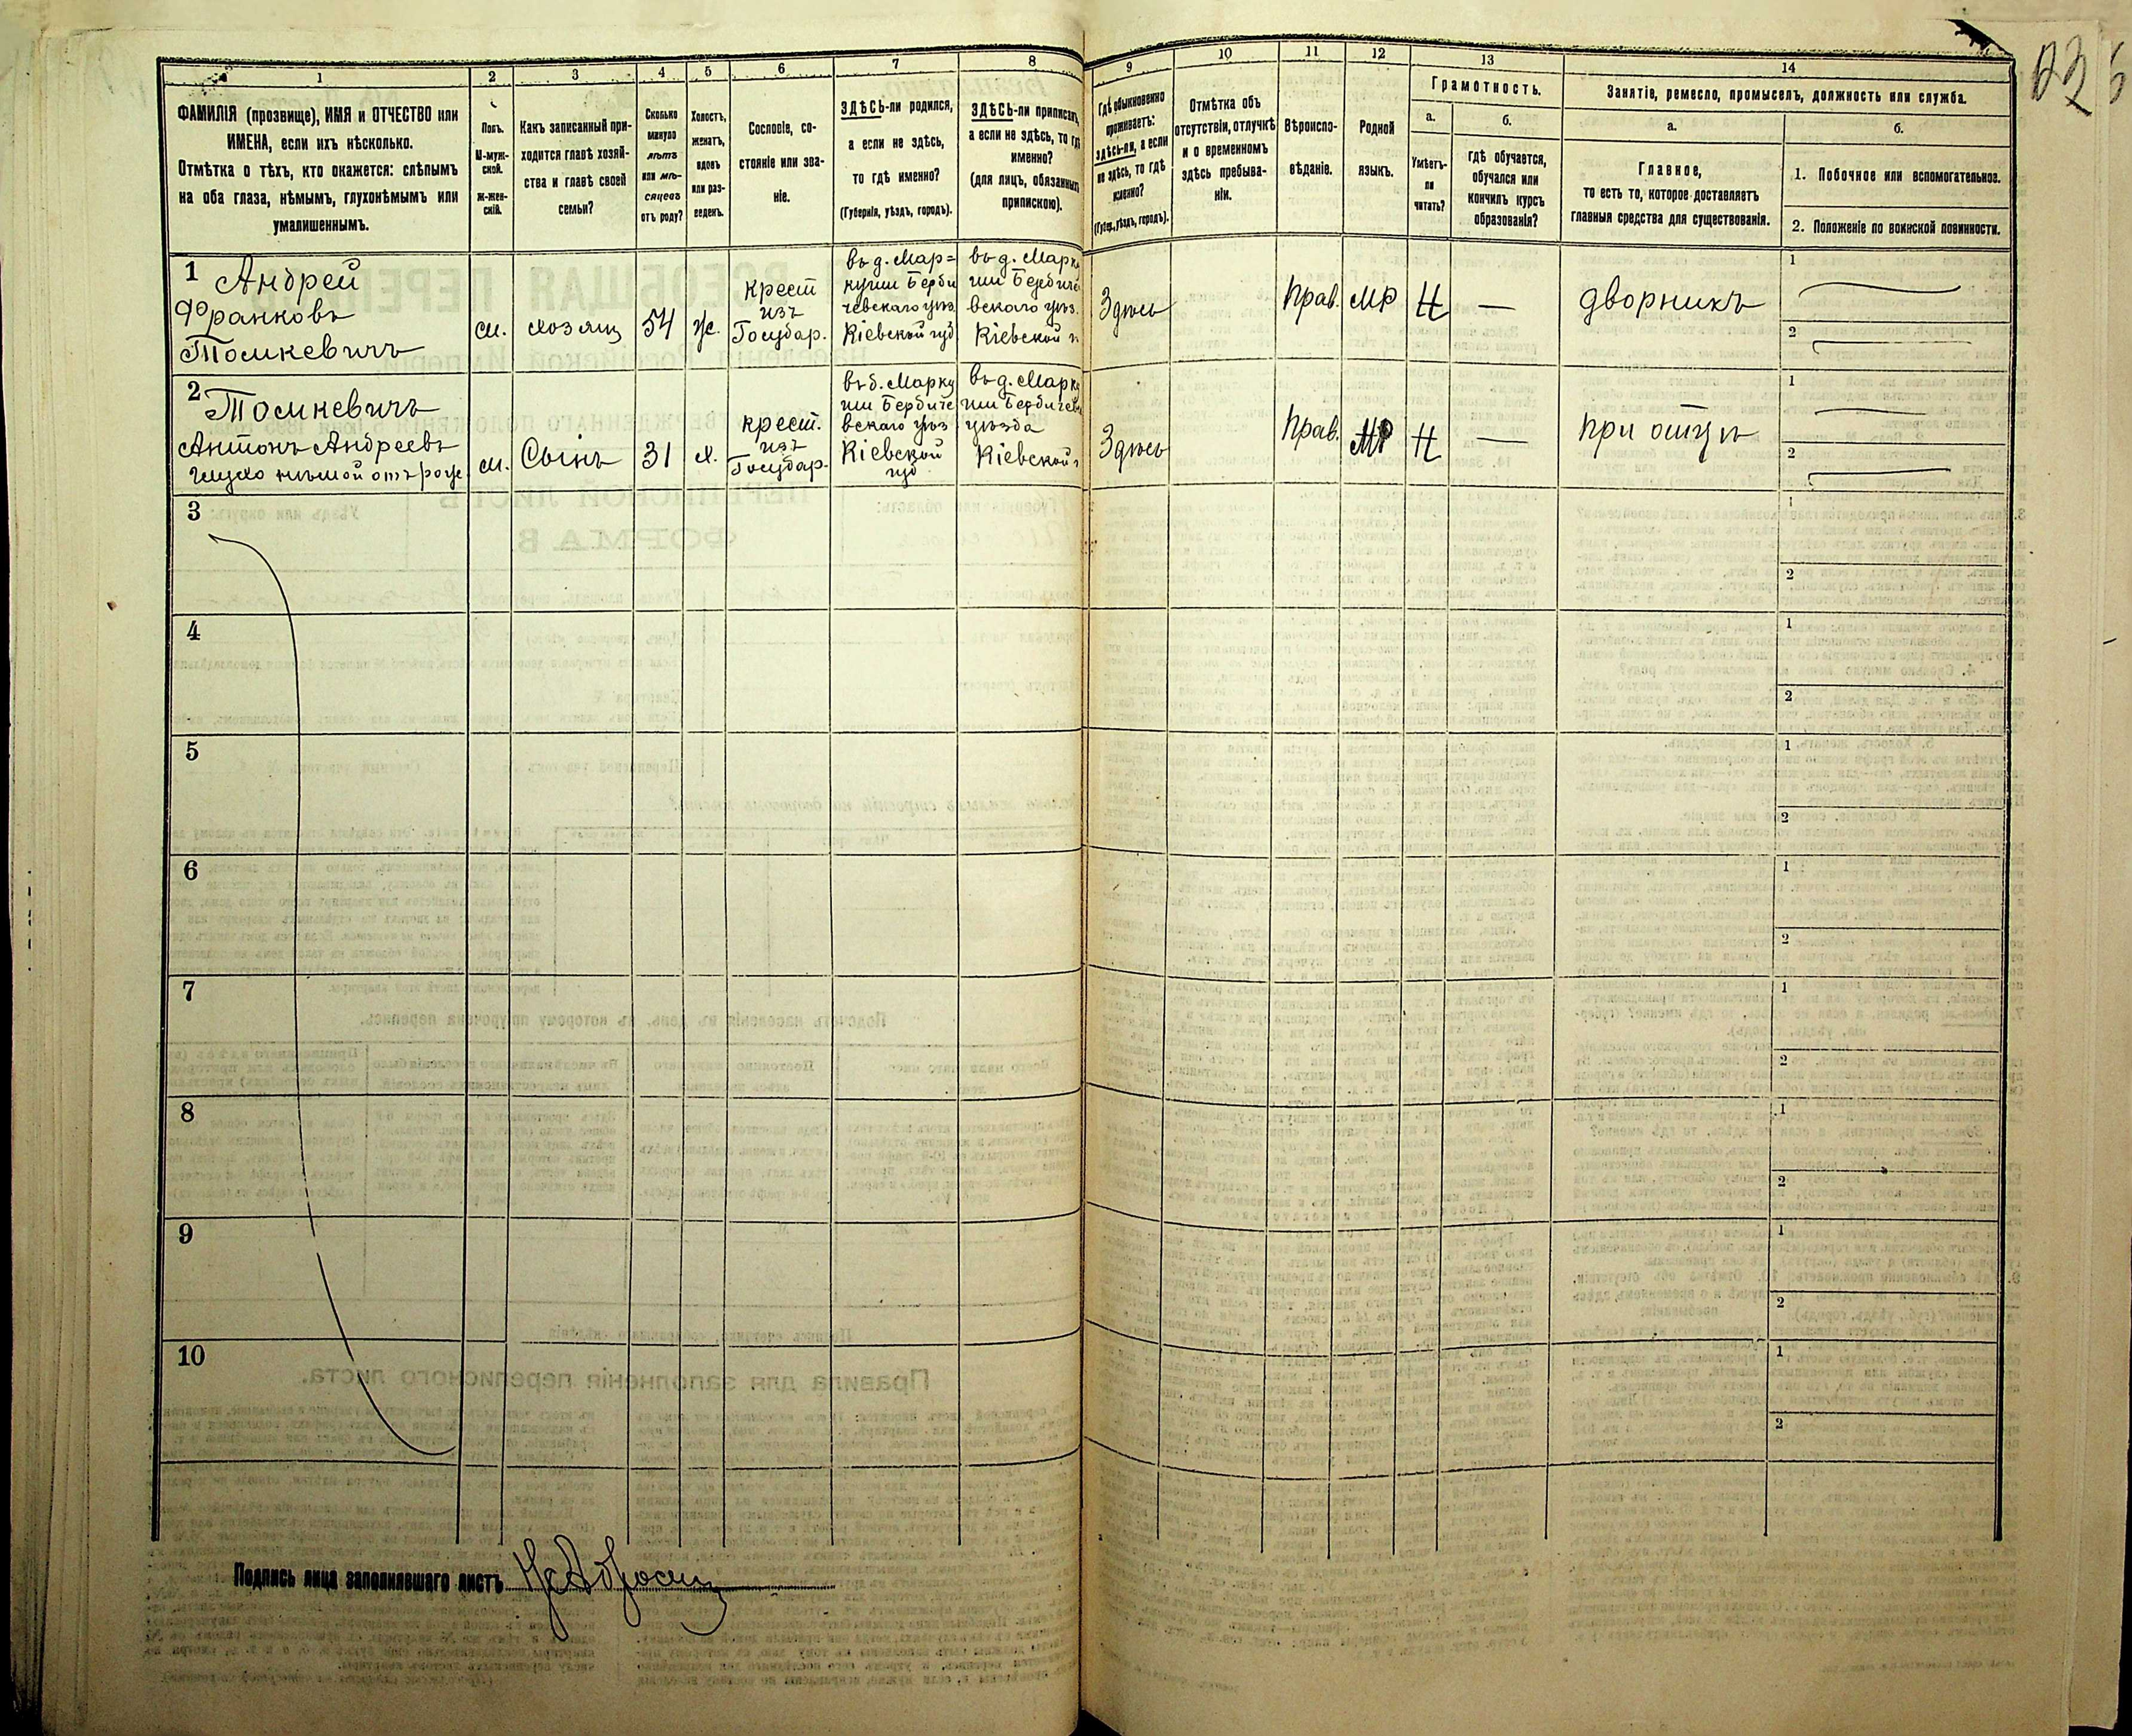 1
2
3
4
5
6
7
8
9
10
11
12
13
14
ФАМИЛІЯ (прозвище), ИМЯ и ОТЧЕСТВО или
ИМЕНА, если ихъ нѣсколько.
Отмѣтка о тѣхъ, кто окажется: слѣпымъ
на оба глаза, нѣмымъ, глухонѣмымъ или
умалишеннымъ.
Полъ.
М-муж-
ской.
Ж-жен-
скій.
Какъ записанный при-
ходится главѣ хозяй-
ства и главѣ своей
семьи?
Сколько
минуло
лѣтъ
или мѣ-
сяцевъ
отъ роду?
Холостъ,
женатъ,
вдовъ
или раз-
веденъ.
Сословіе, со-
стояніе или зва-
ніе.
ЗДѢСЬ-ли родился,
а если не здѣсь,
то гдѣ именно?
(Губернія, уѣздъ, городъ).
ЗДѢСЬ-ли приписанъ,
а если не здѣсь, то гдѣ
именно?
(для лицъ, обязанныхъ
припискою).
Гдѣ обыкновенно
проживаетъ:
здѣсь-ли, а если
не здѣсь, то гдѣ
именно?
(Губер., уѣздъ, городъ).
Отмѣтка объ
отсутствіи, отлучкѣ
и о временномъ
здѣсь пребыва-
ніи.
Вѣроиспо-
вѣданіе.
Родной
языкъ.
Грамотность.
а.
Умѣетъ-
ли
читать?
б.
Гдѣ обучается,
обучался или
кончилъ курсъ
образованія?
Занятіе, ремесло, промыселъ, должность или служба.
а.
Главное,
то есть то, которое доставляетъ
главныя средства для существованія.
б.
1. Побочное или вспомогательное.
2. Положеніе по воинской повинности.
1 Андрей
Франковъ
Томкевичъ
м.
хозяин
54
ж.
крест
изъ
Государ.
въ д. Мар=
куши Берди
чевскаго уѣз.
Кіевской губ
въ д. Марку
ши Бердиче
вскаго уѣз.
Кіевской г
Здѣсь
Прав.
МР
Н
—
дворникъ
1
2
2 Томкевичъ
Антонъ Андреевъ
глухо нѣмой отъ роже
м.
Сынъ
31
х.
крест.
изъ
Государ.
въ д. Марку
ши Бердиче
вскаго уѣз
Кіевской
губ
въ д. Марку
ши Бердичев
уѣзда
Кіевской г
Здѣсь
Прав.
МР
Н
—
при отцѣ
1
2
3
1
2
4
1
2
5
1
2
6
1
2
7
1
2
8
1
2
9
1
2
10
1
2
Подпись лица заполнявшаго листъ